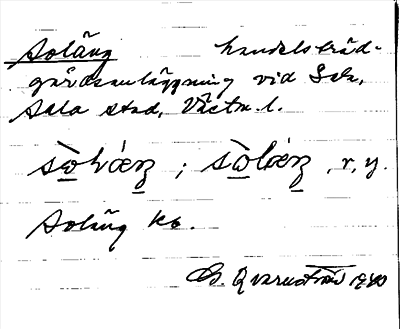 Soläng handelsträd-
gårdsanläggning vid Sala,
Sala stad, Västm. l.
; r, y.
Soläng kb.
G. Qvarnström 1940